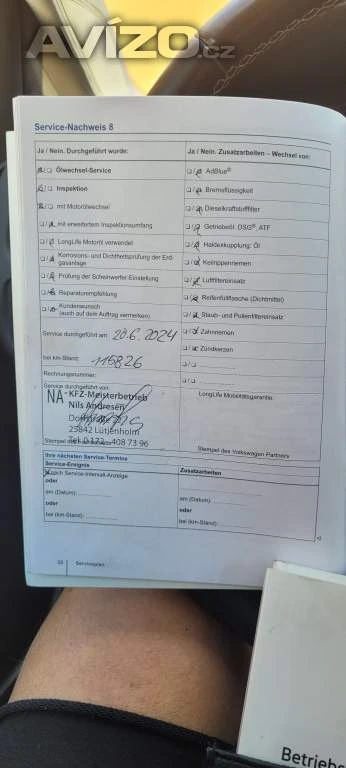 AVÍZO.cz
Service-Nachweis 8
Ja / Nein. Durchgeführt wurde:
Ölwechsel-Service
Inspektion
mit Motorölwechsel
mit erweitertem Inspektionsumfang
LongLife Motoröl verwendet
Korrosions- und Dichtheitsprüfung der Erd-
gasanlage
Prüfung der Scheinwerfer-Einstellung
Reparaturempfehlung
Kundenwunsch
(auch auf dem Auftrag vermerken)
Service durchgeführt am: 20.6.2024
bei km-Stand: 116826
Rechnungsnummer:
Service durchgeführt von:
NA-KFZ-Meisterbetrieb
Nils Andresen
25842 Lütjenholm
408 73 96
Stempel des
Ja / Nein. Zusatzarbeiten – Wechsel von:
AdBlue®
Bremsflüssigkeit
Dieselkraftstofffilter
Getriebeöl, DSG®, ATF
Haldexkupplung: Öl
Keilrippenriemen
Luftfiltereinsatz
Reifenfüllflasche (Dichtmittel)
Staub- und Pollenfiltereinsatz
Zahnriemen
Zündkerzen
LongLife Mobilitätsgarantie:
Stempel des Volkswagen Partners
Ihre nächsten Service-Termine
Service-Ereignis
nach Service-Intervall-Anzeige
oder
am (Datum):
oder
bei (km-Stand):
Zusatzarbeiten
am (Datum):
oder
bei (km-Stand):
Serviceplan
Betriebs